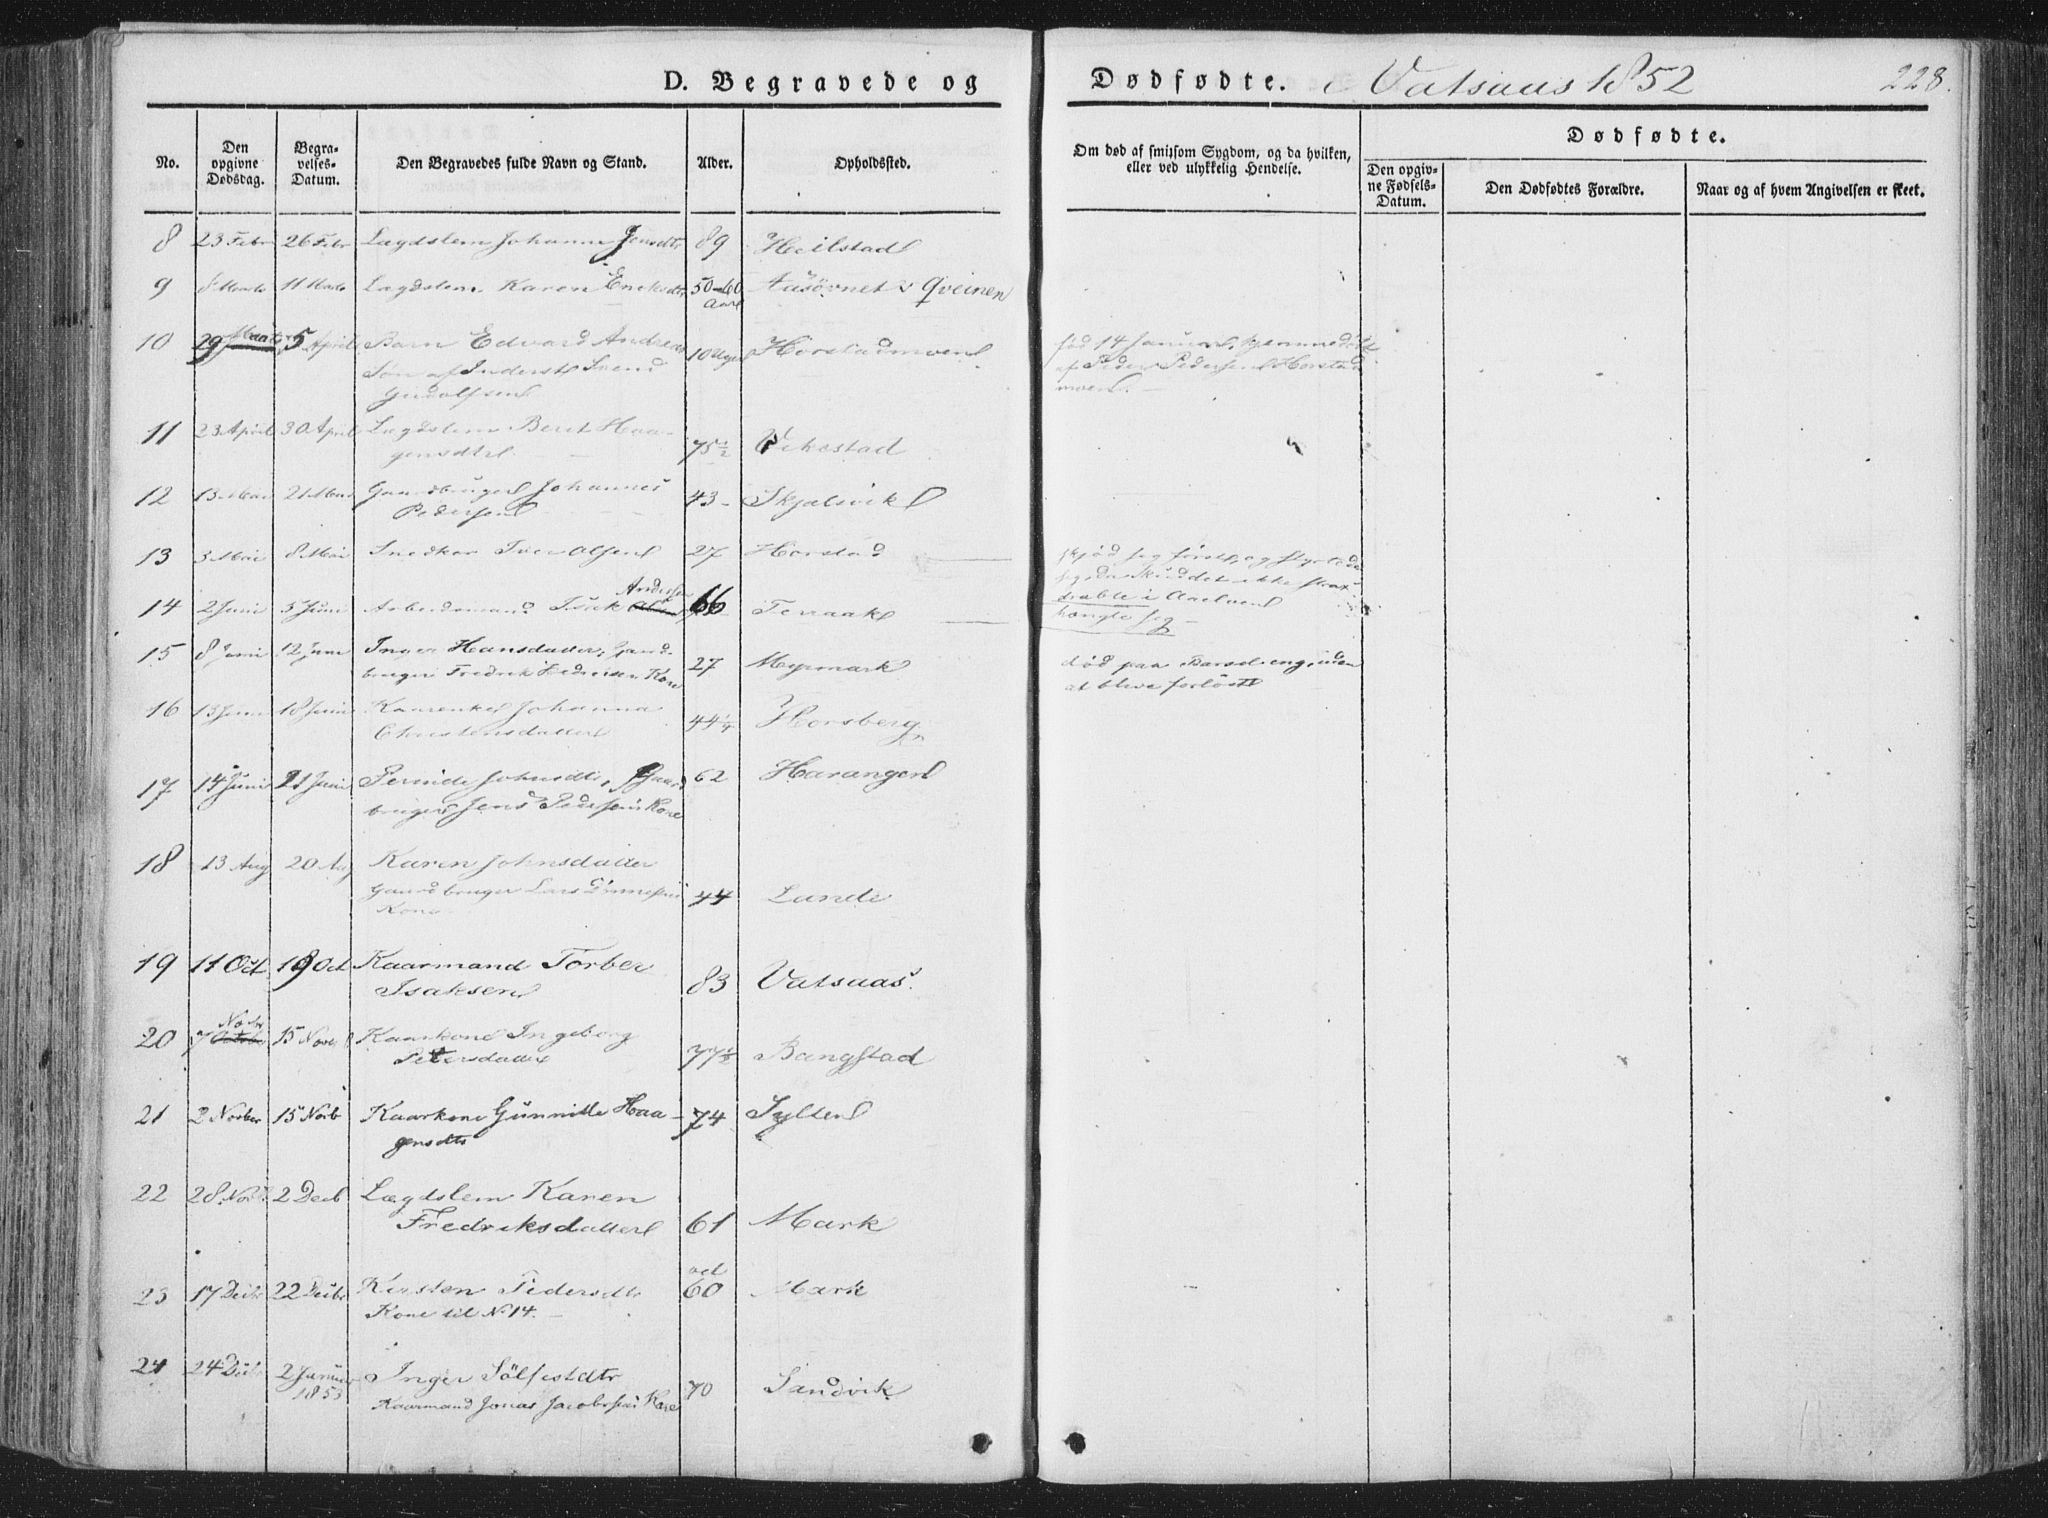 D. Begravede og Dødfødte. Vatsaas 1852 228.
No. Den opgivne Dødsdag. Begravelses-Datum. Den Begravedes fulde Navn og Stand. Alder. Opholdssted. Om død af smitsom Sygdom, og da hvilken, eller ved ulykkelig Hendelse. Dødfødte.
Den opgivne Fødsels-Datum. Den Dødfødtes Forældre. Naar og af hvem Angivelsen er skeet.
8 23 Febr 26 Febr Lægdslem Johanna Jensdtr 89 Heilstad
9 8 Marts 11 Marts Lægdslem Karen Ericksdtr 50-60 Aar Qveinen
10 29 Marts 5 April Barn Edvard Andreas 10 Uger Horstadmoen fød 14 Januar, hjemmedøbt
Søn af Inderst Svend af Peder Pedersen Horstad
moen.
11 23 April 30 April Lægdslem Beret Haa-
gensdtr 75½ Vikestad
12 13 Mai 21 Mai Gaardbruger Johannes 43 Skjelsvik
Pedersen
13 3 Mai 8 Mai Snedker Iver Olsen 27 Horstad skjød seg først, og styrtede
seg, da Skuddet ikke strax
14 2 Juni 5 Juni Arbeidsmand Isak Andersen 66 Terraak dræbte i Aaelven
hængte seg
15 8 Juni 12 Juni Inger Hansdatter, Gaard- 27 Myrmark død paa Barseleng, uden
bruger Fredrik Kone at blive forløst
16 13 Juni 18 Juni Kaarenke Johanna 44¼ Horsberg
Christensdatter
17 14 Juni 21 Juni Pernide Johnsdtr, Gaard 62 Haranger
bruger Jens Pedersens Kone
18 13 Aug 20 Aug Karen Johnsdatter
Gaardbruger Lars Tønnesens 44 Lande
Kone
19 11 Oct 19 Oct Kaarmand Torber
Isaksen 83 Vatsaas.
20 7 Novbr 15 Novbr Kaarkone Ingeborg
Petersdatter 77½ Bangstad
21 2 Novber 15 Novb Kaarkone Gunnille Haa- 74 Sylten
gensdtr
22 28 Nov 2 Decb Lægdslem Karen
Fredriksdatter 61 Mark
23 17 Decbr 22 Decbr Kirsten Pedersdtr ad 60 Mark
Kone til No 14.
24 24 Decbr 2 Januar 1853 Inger Sölfestdtr 70 Sandvik
Kaarmand Jonas Jacobsens Kone